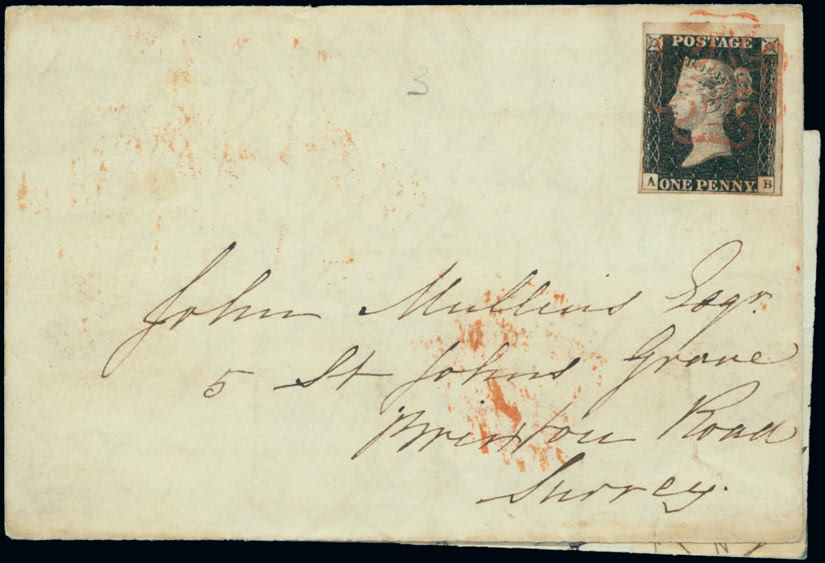 3
POSTAGE
A ONE PENNY B
John Mullins Esqr.
5 St Johns Grove
Brixton Road
Surrey.